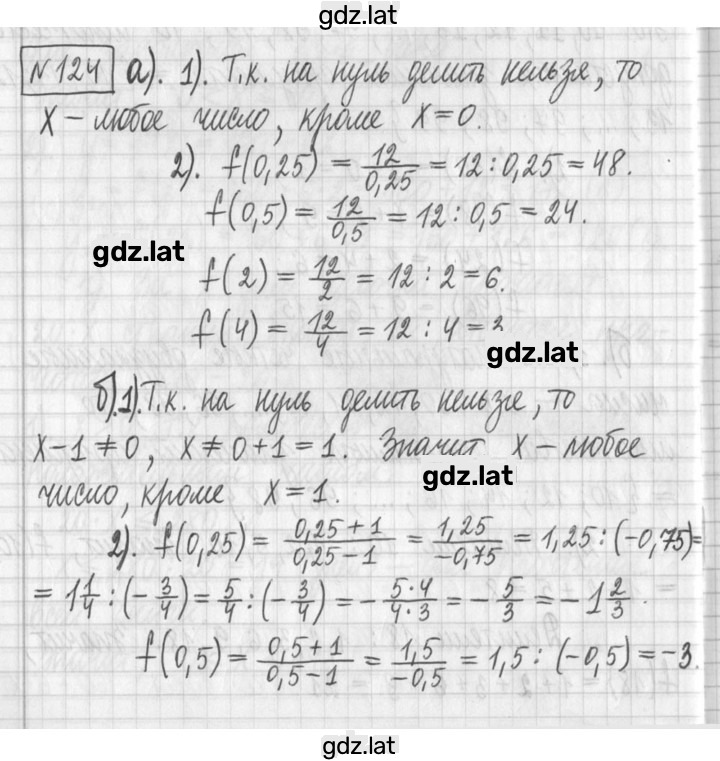 gdz.lat
N 124 а). 1). Т.к. на нуль делить нельзя, то
x – любое число, кроме x = 0.
2). f(0,25) = 12/0,25 = 12 : 0,25 = 48.
f(0,5) = 12/0,5 = 12 : 0,5 = 24.
gdz.lat
f(2) = 12/2 = 12 : 2 = 6.
f(4) = 12/4 = 12 : 4 = 3
gdz.lat
б).1). Т.к. на нуль делить нельзя, то
x – 1 ≠ 0, x ≠ 0 + 1 = 1. Значит x – любое
gdz.lat
число, кроме x = 1.
2). f(0,25) = (0,25 + 1)/(0,25 – 1) = 1,25/(–0,75) = 1,25 : (–0,75) =
= 1 1/4 : (– 3/4) = 5/4 : (– 3/4) = – (5·4)/(4·3) = – 5/3 = – 1 2/3.
f(0,5) = (0,5 + 1)/(0,5 – 1) = 1,5/(–0,5) = 1,5 : (–0,5) = –3.
gdz.lat